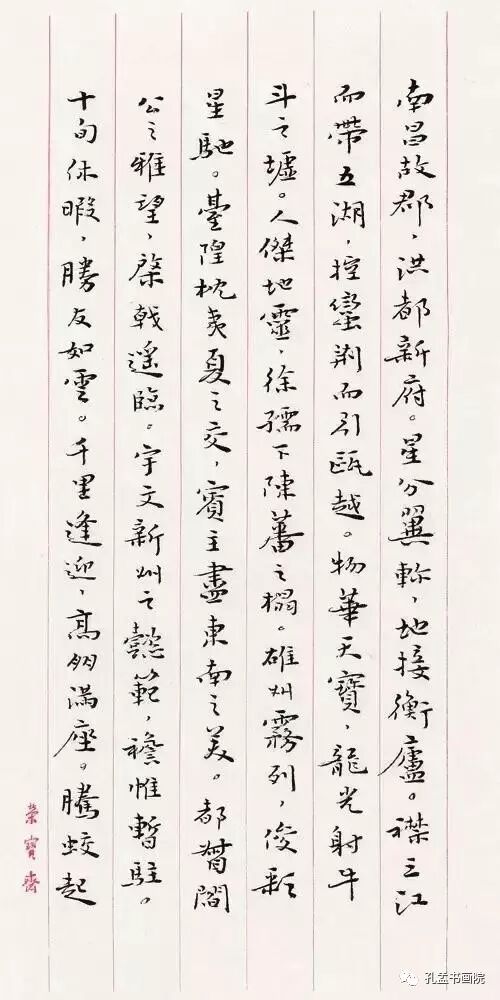 南昌故郡，洪都新府。星分翼軫，地接衡廬。襟三江
而帶五湖，控蠻荆而引甌越。物華天寶，龍光射牛
斗之墟。人傑地靈，徐孺下陳蕃之榻。雄州霧列，俊彩
星馳。臺隍枕夷夏之交，賓主盡東南之美。都督閻
公之雅望，棨戟遥臨。宇文新州之懿範，襜惟暫駐。
十旬休暇，勝友如雲。千里逢迎，高朋滿座。騰蛟起
榮寶齋
孔孟书画院